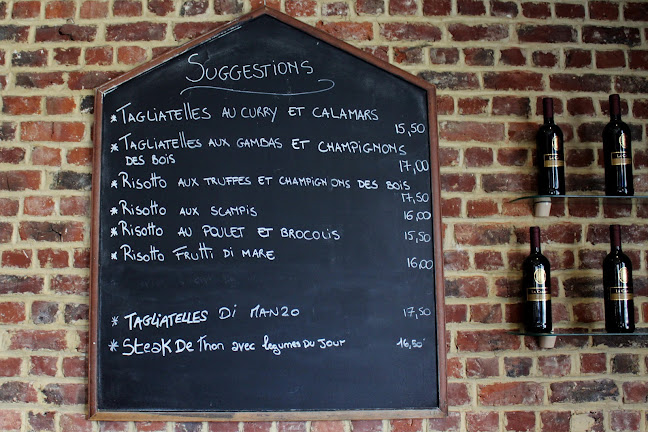 SUGGESTIONS
* TAGLIATELLES AU CURRY ET CALAMARS
15,50
* TAGLIATELLES AUX GAMBAS ET CHAMPIGNONS
DES BOIS
17,00
* RISOTTO AUX TRUFFES ET CHAMPIGNONS DES BOIS
17,50
* RISOTTO AUX SCAMPIS
16,00
* RISOTTO AU POULET ET BROCOLIS
15,50
* RISOTTO FRUTTI DI MARE
16,00
* TAGLIATELLES DI MANZO 17,50
* Steak De Thon avec legumes Du Jour 16,50